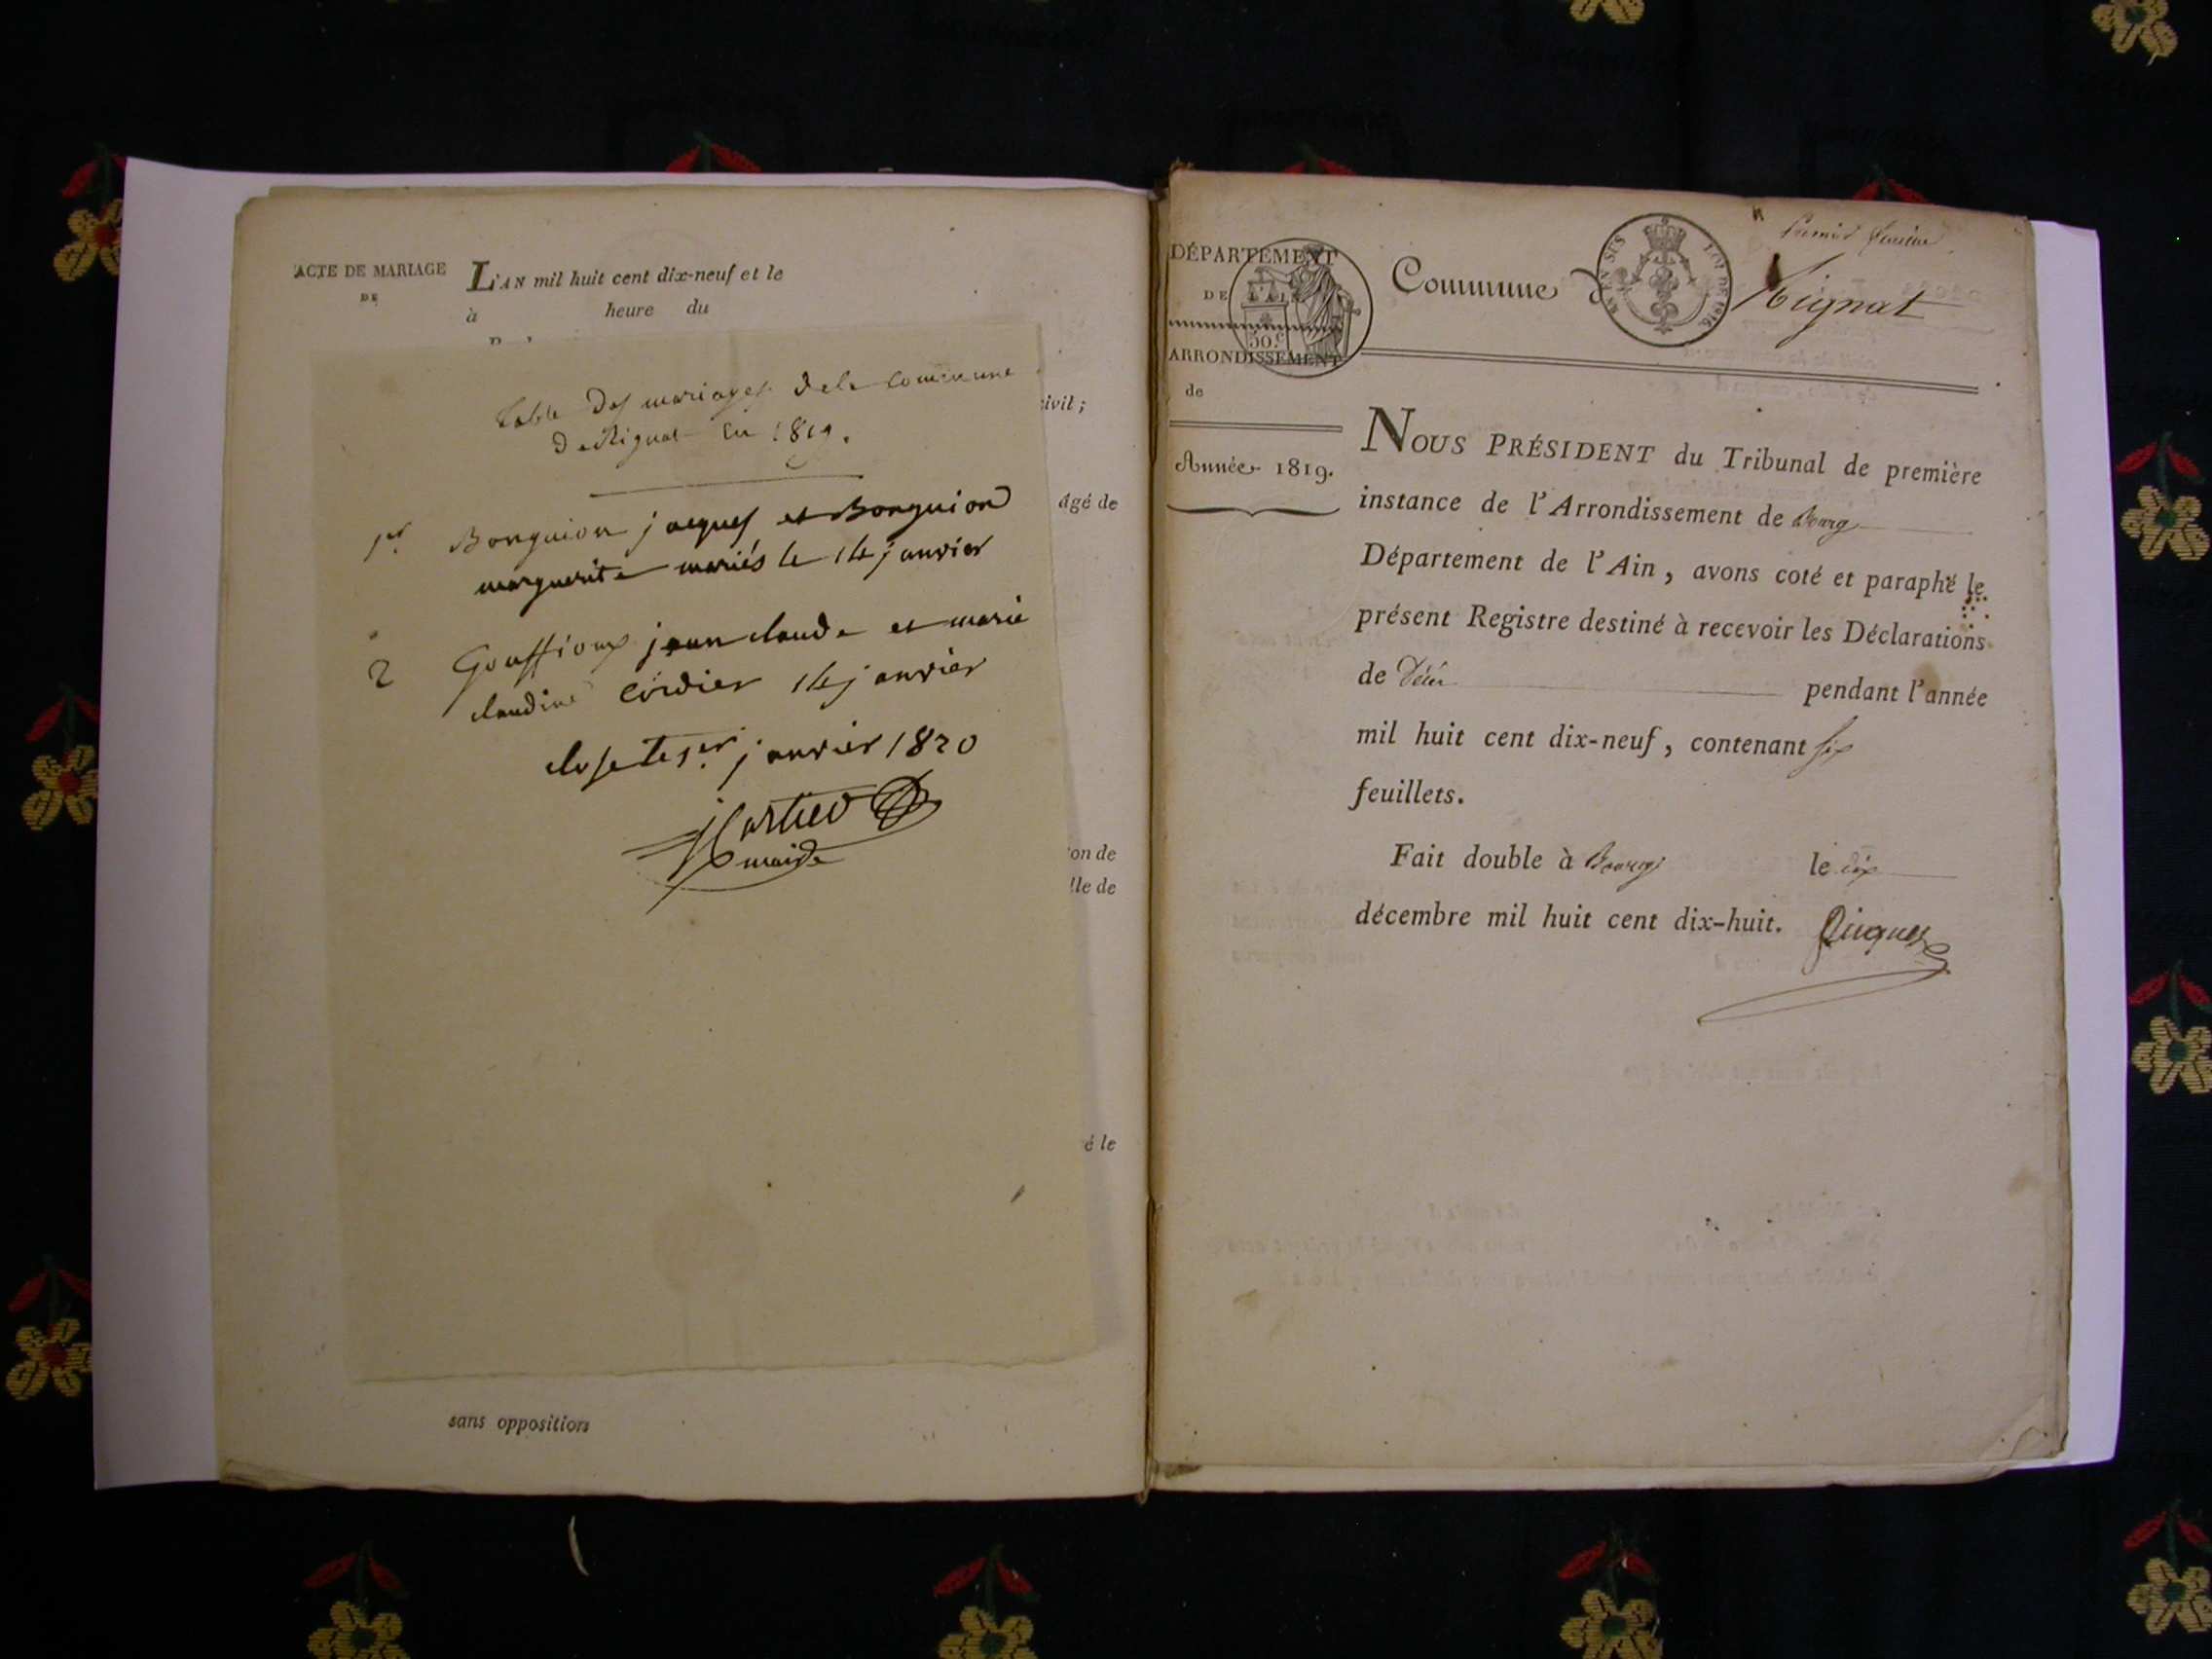 ACTE DE MARIAGE
DE
L'AN mil huit cent dix-neuf et le
à heure du
civil ;
âgé de
on de
lle de
é le
sans opposition
table des mariages de la commune
de Rignat en 1819.
1er Bonguion jacques et Bonguion
marguerite mariés le 14 janvier
2 Gouffioux jean claude et marie
claudine Cordier 14 janvier
close le 1er janvier 1820
maire
premier feuillet
DÉPARTEMENT
DE L'AIN
50.c
ARRONDISSEMENT
de
Commune de Rignat
EN SUS LOI DE 1816.
Année 1819.
NOUS PRÉSIDENT du Tribunal de première
instance de l'Arrondissement de Bourg
Département de l'Ain, avons coté et paraphé le
présent Registre destiné à recevoir les Déclarations
de Décès pendant l'année
mil huit cent dix-neuf, contenant six
feuillets.
Fait double à Bourg le dix
décembre mil huit cent dix-huit.